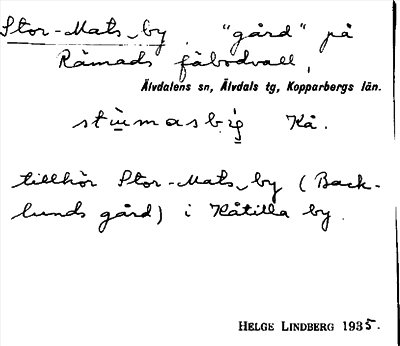 Stor-Mats_by. "gård" på
Råmads fäbodvall,
Älvdalens sn, Älvdals tg, Kopparbergs län.
Kå.
tillhör Stor-Mats_by (Back-
lunds gård) i Kåtilla by.
HELGE LINDBERG 1935.